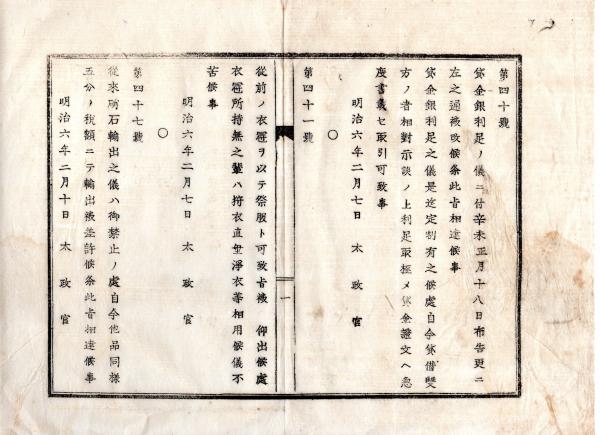 第四十號
貸金銀利足ノ儀ニ付辛未正月十八日布告更ニ
左之通被改候条此旨相達候事
貸金銀利足之儀是迄定制有之候處自今貸借雙
方ノ者相對示談ノ上利足取極メ貸金證文ヘ悉
皆書載セ取引可致事
明治六年二月七日 太政官
○
第四十一號
一
從前ノ衣冠ヲ以テ祭服ト可致旨被 仰出候處
衣冠所持無之輩ハ狩衣直垂淨衣等相用候儀不
苦候事
明治六年二月七日 太政官
○
第四十七號
從來礦石輸出之儀ハ御禁止ノ處自今他品同様
五分ノ税額ニテ輸出被差許候条此旨相達候事
明治六年二月十日 太政官